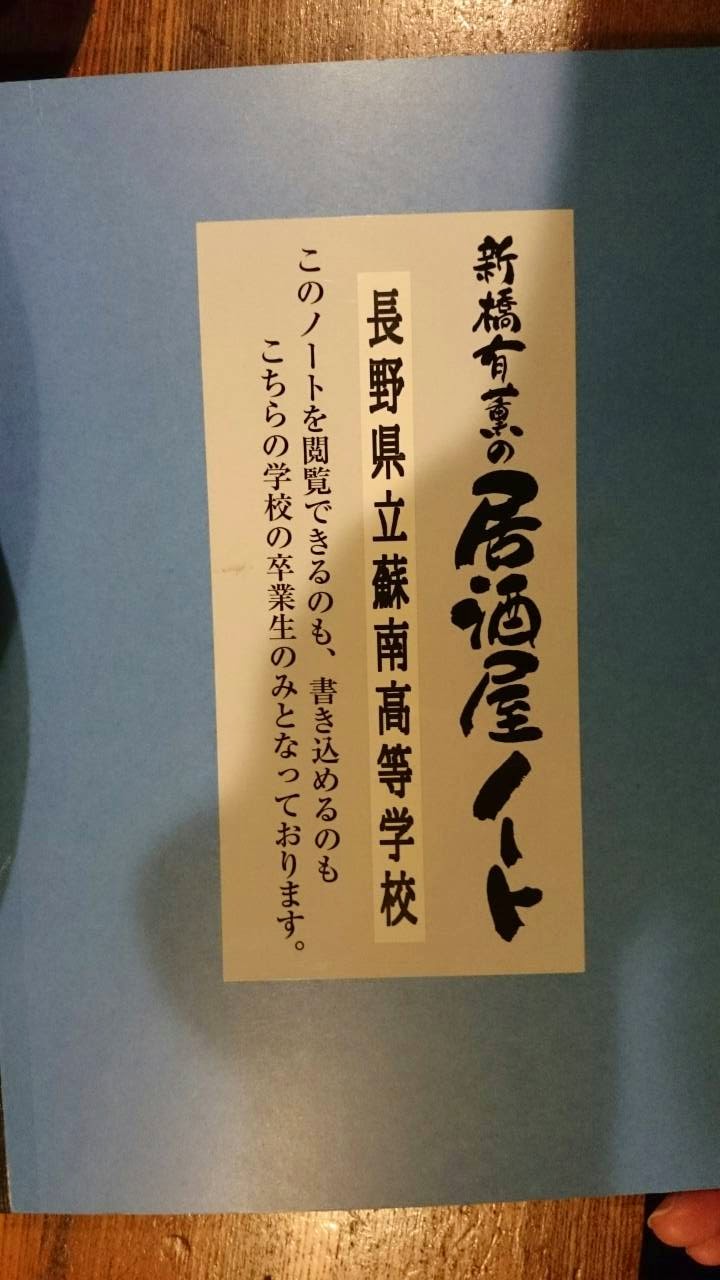 新橋有薫の居酒屋ノート
長野県立蘇南高等学校
このノートを閲覧できるのも、書き込めるのも
こちらの学校の卒業生のみとなっております。